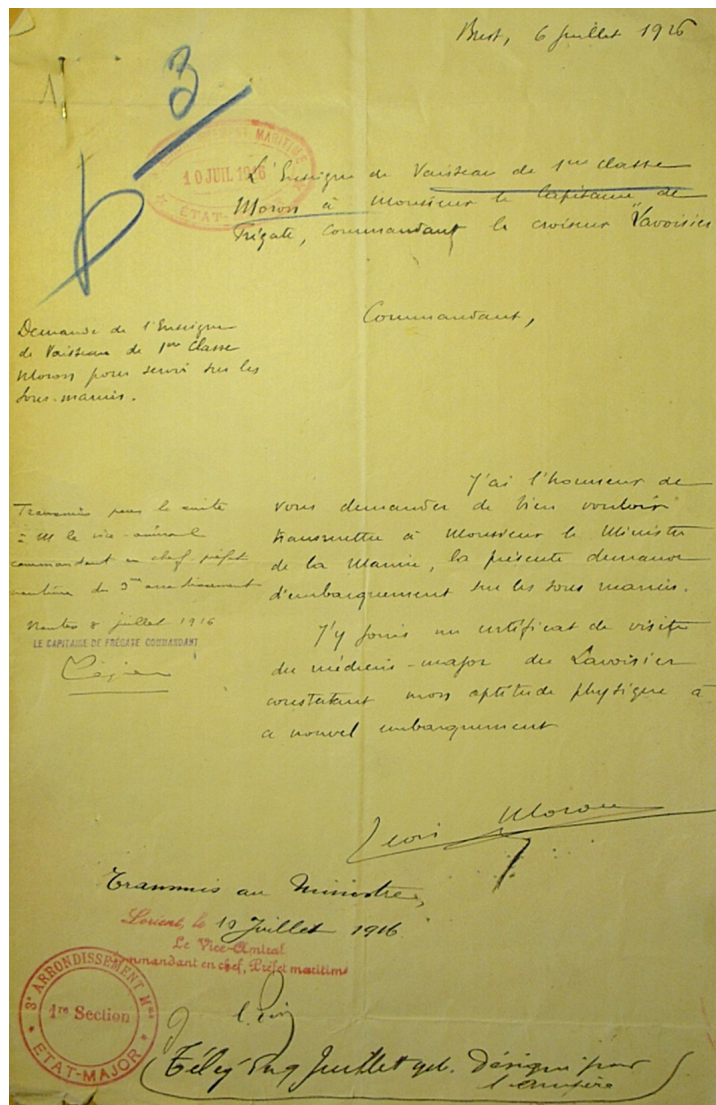 Brest, 6 Juillet 1916
3
10 JUIL 1916
MARITIME
ETAT-MAJOR
L'Enseigne de Vaisseau de 1ère Classe
Moron à Monsieur le Capitaine de
Frégate, Commandant le croiseur "Lavoisier
Commandant,
Demande de l'Enseigne
de Vaisseau de 1ère Classe
Moron pour servir sur les
sous-marins.
J'ai l'honneur de
vous demander de bien vouloir
transmettre à Monsieur le Ministre
de la Marine, la présente demande
d'embarquement sur les sous marins.
J'y joins un certificat de visite
du médecin-major du Lavoisier
constatant mon aptitude physique à
ce nouvel embarquement
Transmis pour la suite
à M le vice-amiral
commandant en chef, préfet
maritime du 3me arrondissement
Nantes 8 juillet 1916
LE CAPITAINE DE FRÉGATE COMMANDANT
Moron
Transmis au Ministre,
Lorient, le 10 Juillet 1916.
Le Vice-Amiral
Commandant en chef, Préfet maritime
3e ARRONDISSEMENT Mme
1re Section
ETAT-MAJOR
Juillet Désigné pour
l'ampère